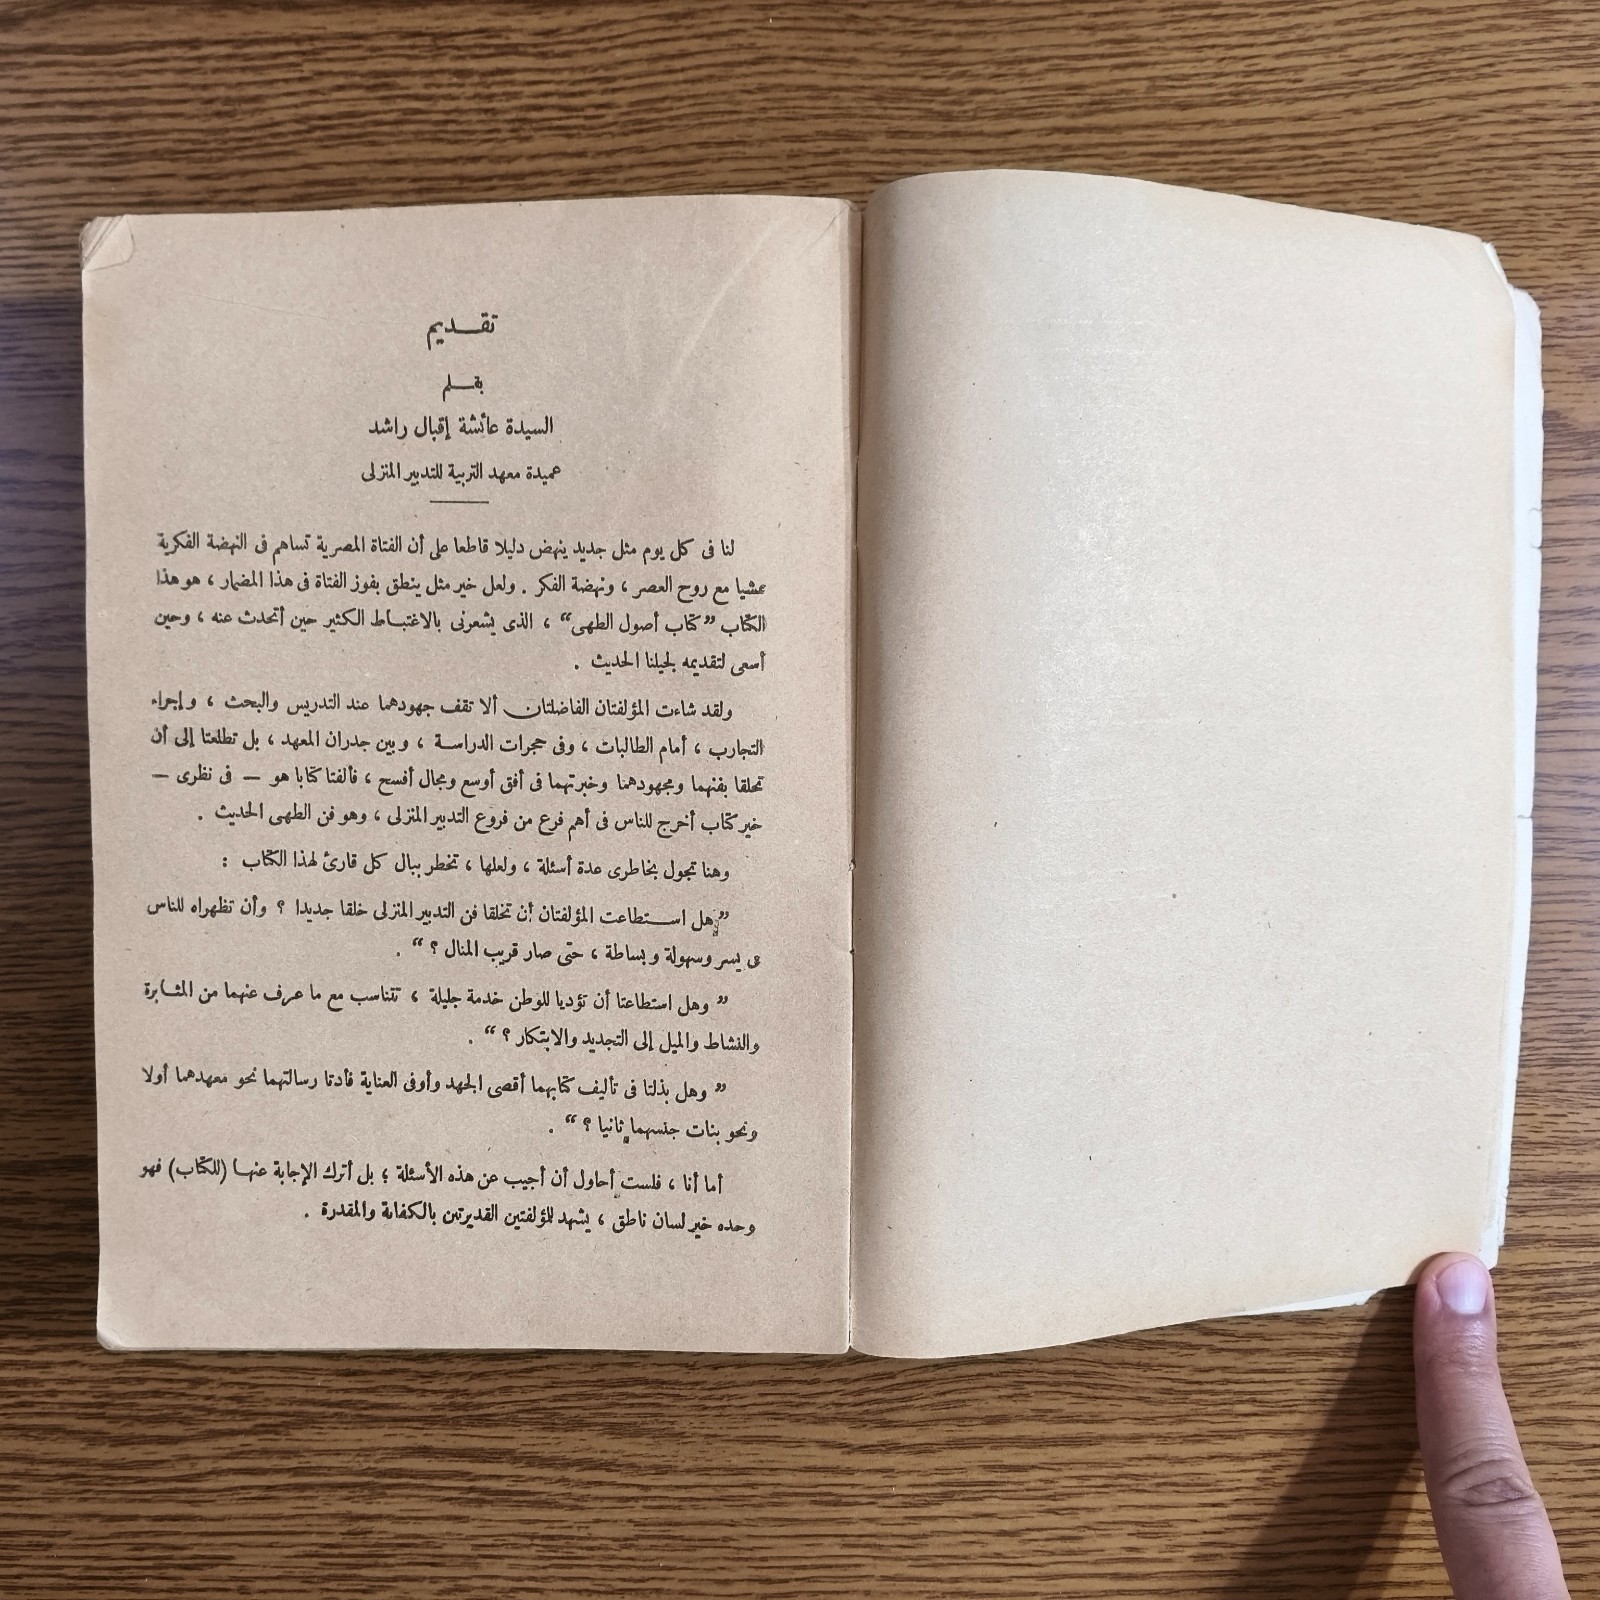 تقـديم
بقـلم
السيدة عائشة إقبال راشد
عميدة معهد التربية للتدبير المنزلى
لنا فى كل يوم مثل جديد ينهض دليلا قاطعا على أن الفتاة المصرية تساهم فى النهضة الفكرية
تمشيا مع روح العصر ، ونهضة الفكر . ولعل خير مثل ينطق بفوز الفتاة فى هذا المضمار ، هو هذا
الكتاب ”كتاب أصول الطهى“ ، الذى يشعرنى بالاغتباط الكثير حين أتحدث عنه ، وحين
أسعى لتقديمه لجيلنا الحديث .
ولقد شاءت المؤلفتان الفاضلتان ألا تقف جهودهما عند التدريس والبحث ، وإجراء
التجارب ، أمام الطالبات ، وفى حجرات الدراسة ، وبين جدران المعهد ، بل تطلعتا إلى أن
تحلقا بفنهما ومجهودهما وخبرتهما فى أفق أوسع ومجال أفسح ، فألفتا كتابا هو — فى نظرى —
خير كتاب أخرج للناس فى أهم فرع من فروع التدبير المنزلى ، وهو فن الطهى الحديث .
وهنا تجول بخاطرى عدة أسئلة ، ولعلها ، تخطر ببال كل قارئ لهذا الكتاب :
”هل استطاعت المؤلفتان أن تخلقا فن التدبير المنزلى خلقا جديدا ؟ وأن تظهراه للناس
فى يسر وسهولة وبساطة ، حتى صار قريب المنال ؟ “ .
” وهل استطاعتا أن تؤديا للوطن خدمة جليلة ، تتناسب مع ما عرف عنهما من المثابرة
والنشاط والميل إلى التجديد والابتكار ؟ “ .
” وهل بذلتا فى تأليف كتابهما أقصى الجهد وأوفى العناية فأدتا رسالتهما نحو معهدهما أولا
ونحو بنات جنسهما ثانيا ؟ “ .
أما أنا ، فلست أحاول أن أجيب عن هذه الأسئلة ؛ بل أترك الإجابة عنها (للكتاب) فهو
وحده خير لسان ناطق ، يشهد للمؤلفتين القديرتين بالكفاية والمقدرة .